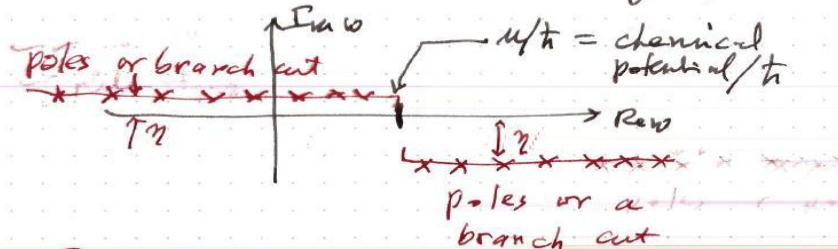 Im ω
μ/ħ = chemical
potential/ħ
poles or branch cut
Re ω
η
η
poles or a
branch cut